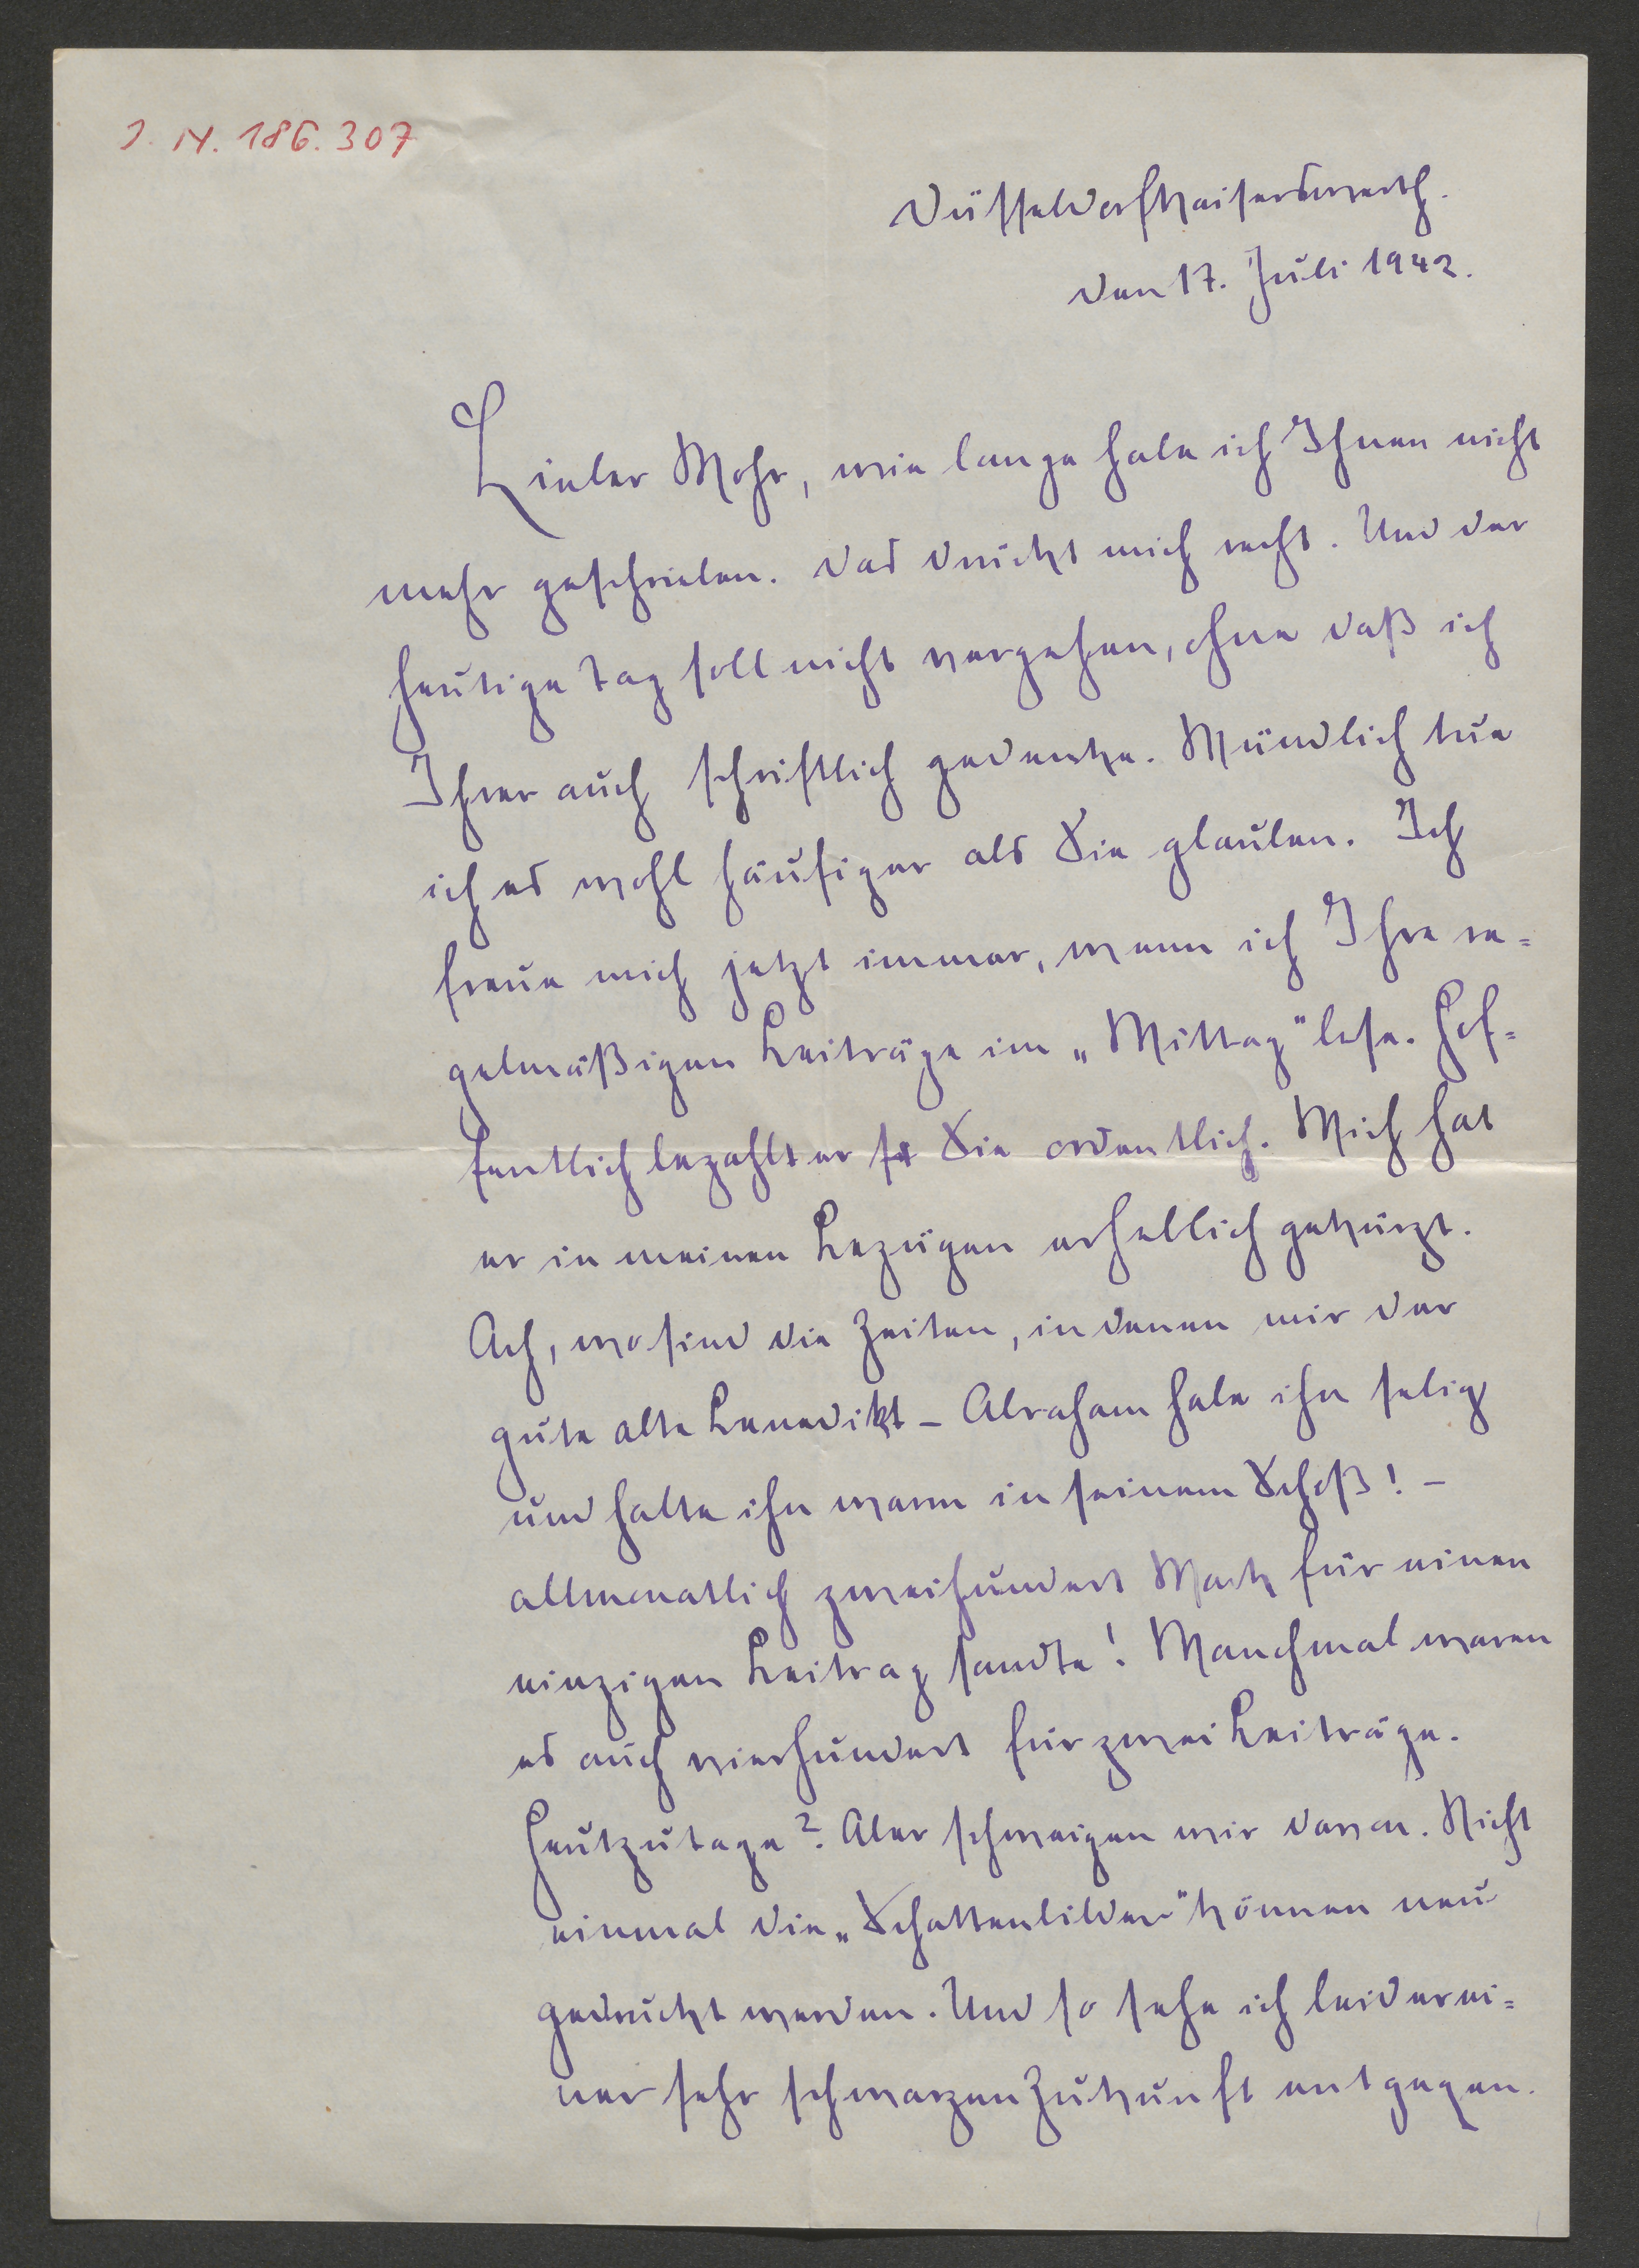 I. N. 186.307
Düsseldorfkaiserswerth.
den 17. Juli 1942.
Lieber Mohr, wie lange habe ich Ihnen nicht
mehr geschrieben. Das drückt mich recht. Und der
heutige Tag soll nicht vergehen, ohne daß ich
Ihrer auch schriftlich gedenke. Mündlich tue
ich es wohl häufiger als Sie glauben. Ich
freue mich jetzt immer, wenn ich Ihre re=
gelmäßigen Beiträge im „Mittag" lese. Hof=
fentlich bezahlt er Sie ordentlich. Mich hat
er in meinen Bezügen erheblich gekürzt.
Ach, wo sind die Zeiten, in denen mir der
gute alte Benedikt – Abraham habe ihn selig
und halte ihn warm in seinem Schoß! –
allmonatlich zweihundert Mark für einen
einzigen Beitrag sandte! Manchmal waren
es auch vierhundert für zwei Beiträge.
Heutzutage? Aber schweigen wir davon. Nicht
einmal die „Schattenbilder" können neu
gedruckt werden. Und so sehe ich leider ei=
ner sehr schwarzen Zukunft entgegen.